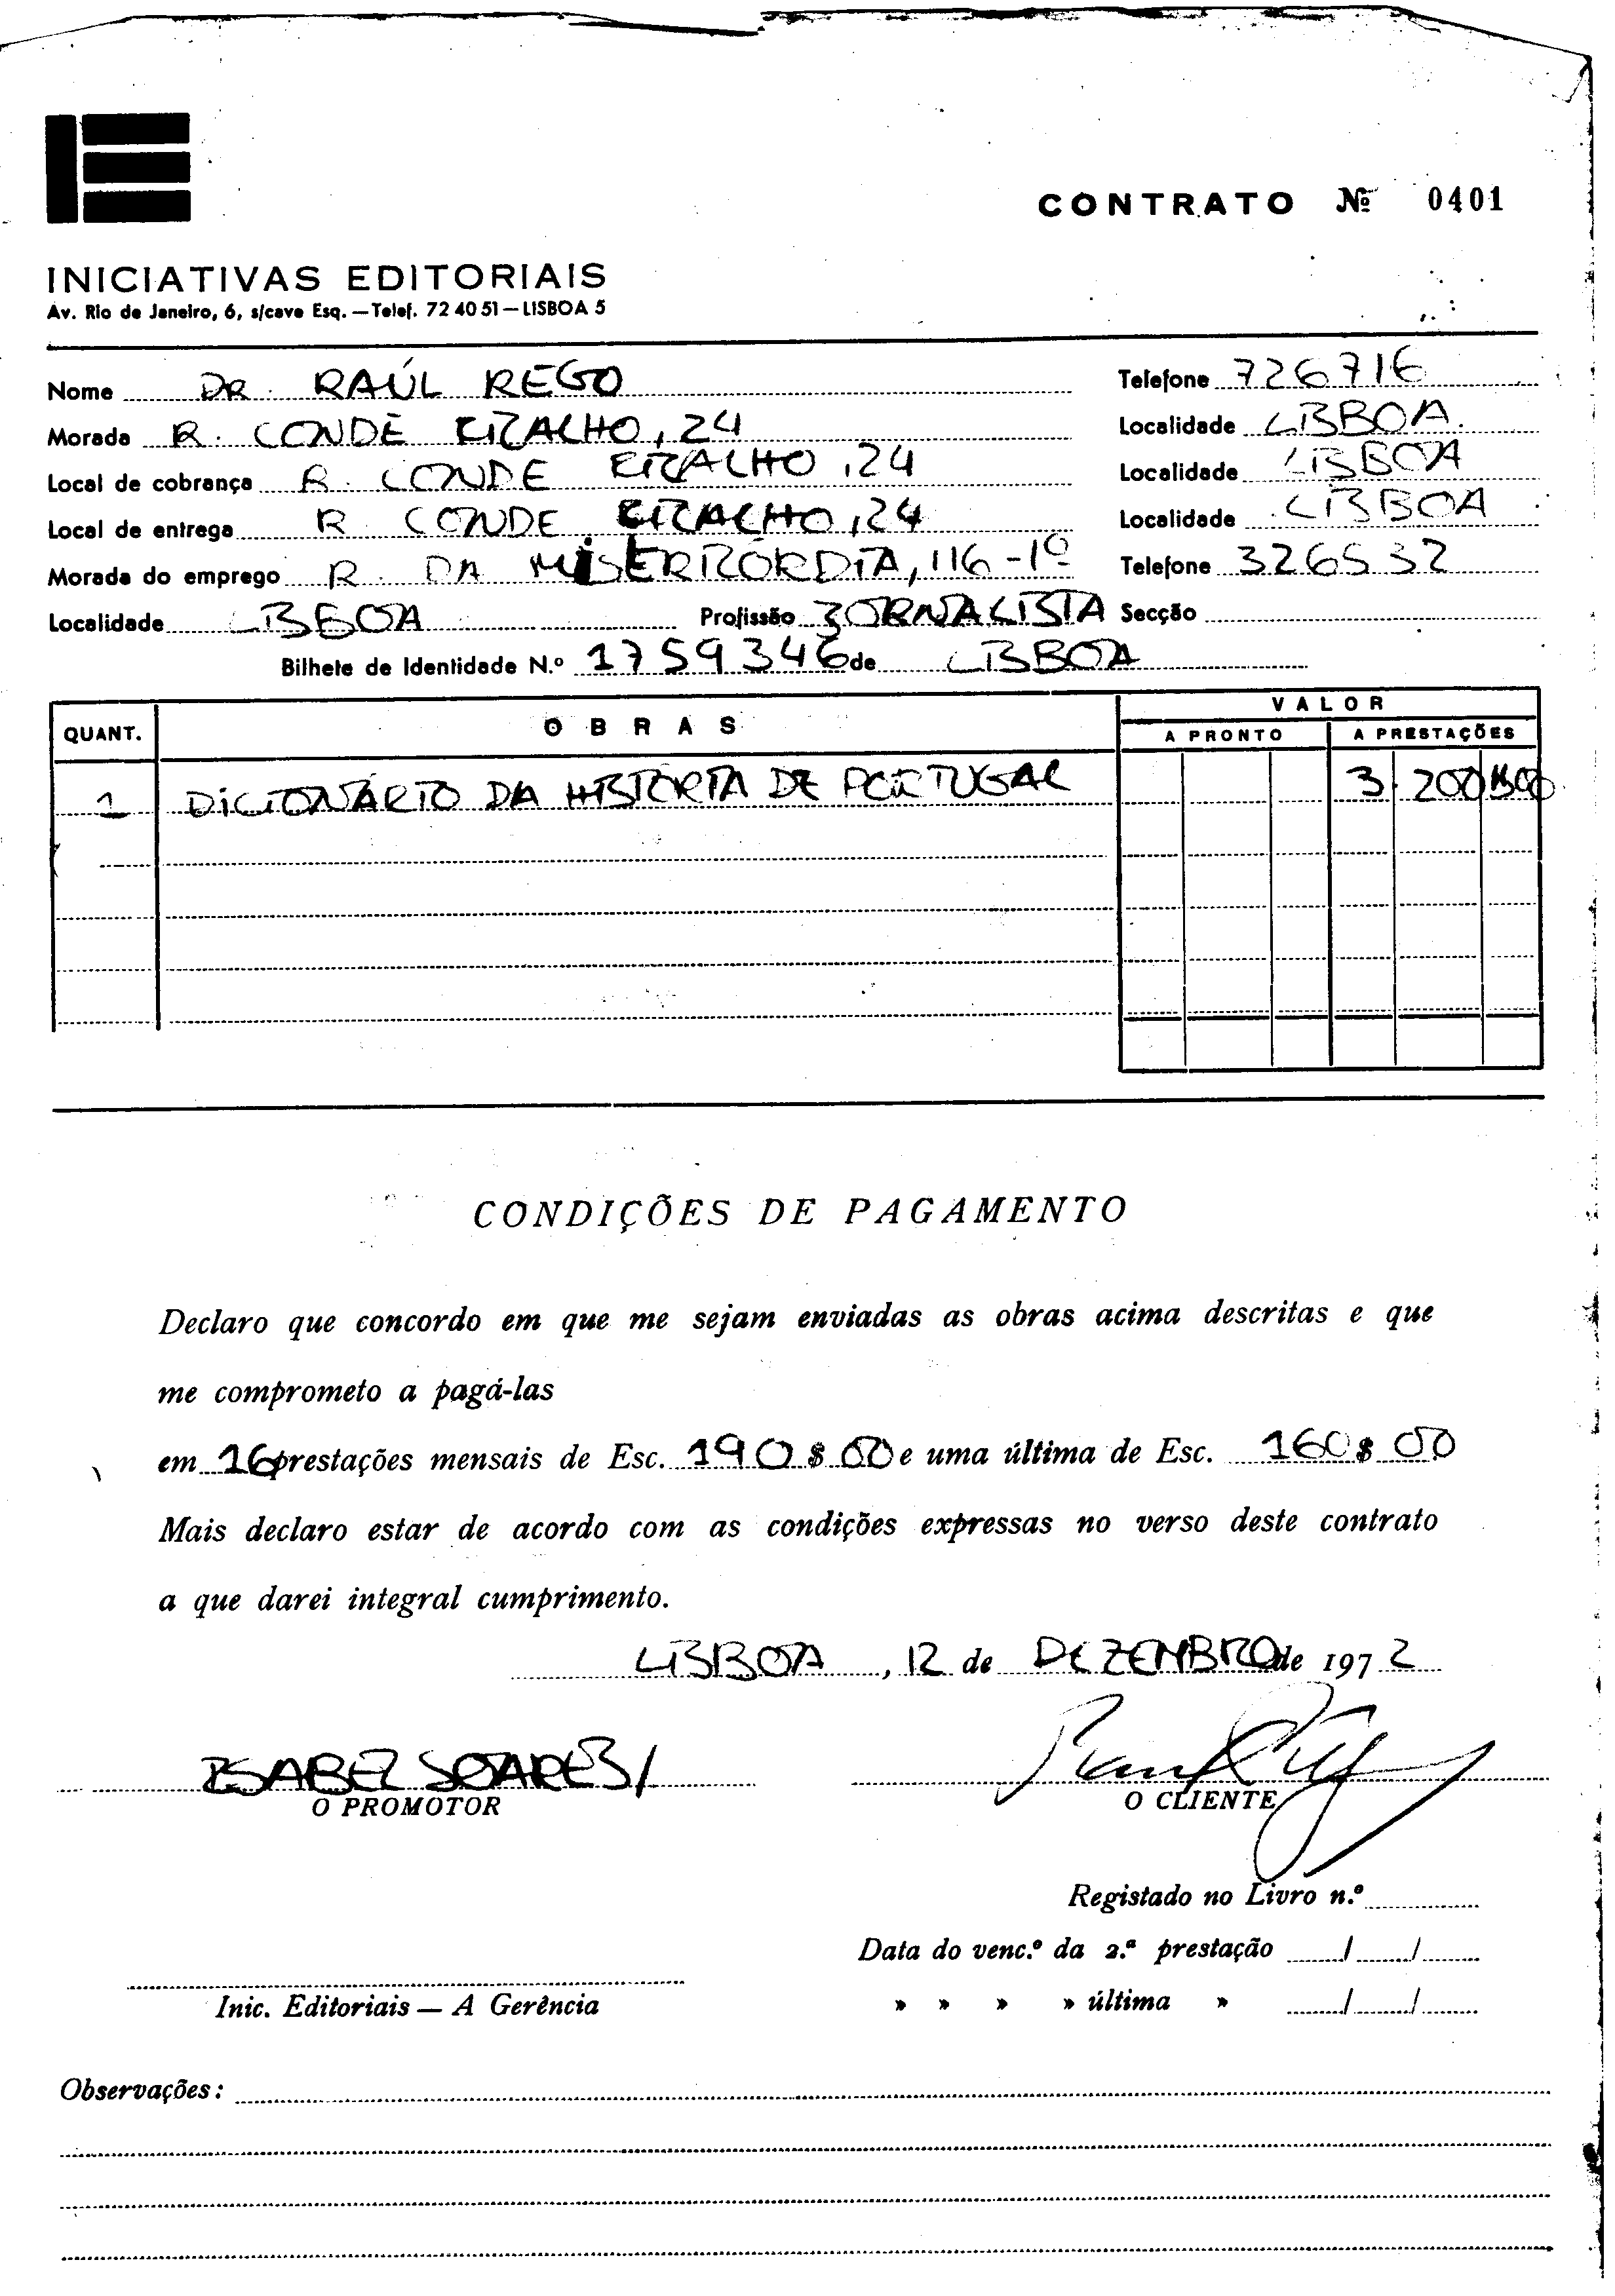 CONTRATO Nº 0401
INICIATIVAS EDITORIAIS
Av. Rio de Janeiro, 6, s/cave Esq. — Telef. 72 40 51 — LISBOA 5
Nome DR. RAÚL REGO Telefone 726716
Morada R. CONDE FICALHO, 24 Localidade LISBOA.
Local de cobrança R. CONDE FICALHO, 24 Localidade LISBOA
Local de entrega R. CONDE FICALHO, 24 Localidade LISBOA
Morada do emprego R. DA MISERICÓRDIA, 116-1º Telefone 326532
Localidade LISBOA Profissão JORNALISTA Secção
Bilhete de Identidade N.º 1759346 de LISBOA
VALOR
QUANT. OBRAS A PRONTO A PRESTAÇÕES
1 DICIONÁRIO DA HISTÓRIA DE PORTUGAL 3.200$00
CONDIÇÕES DE PAGAMENTO
Declaro que concordo em que me sejam enviadas as obras acima descritas e que
me comprometo a pagá-las
em 16 prestações mensais de Esc. 190$00 e uma última de Esc. 160$00
Mais declaro estar de acordo com as condições expressas no verso deste contrato
a que darei integral cumprimento.
LISBOA, 12 de DEZEMBRO de 1972
ISABEL SOARES/
O PROMOTOR O CLIENTE
Registado no Livro n.º
Data do venc.º da 2.ª prestação / /
Inic. Editoriais — A Gerência » » » » última » / /
Observações: